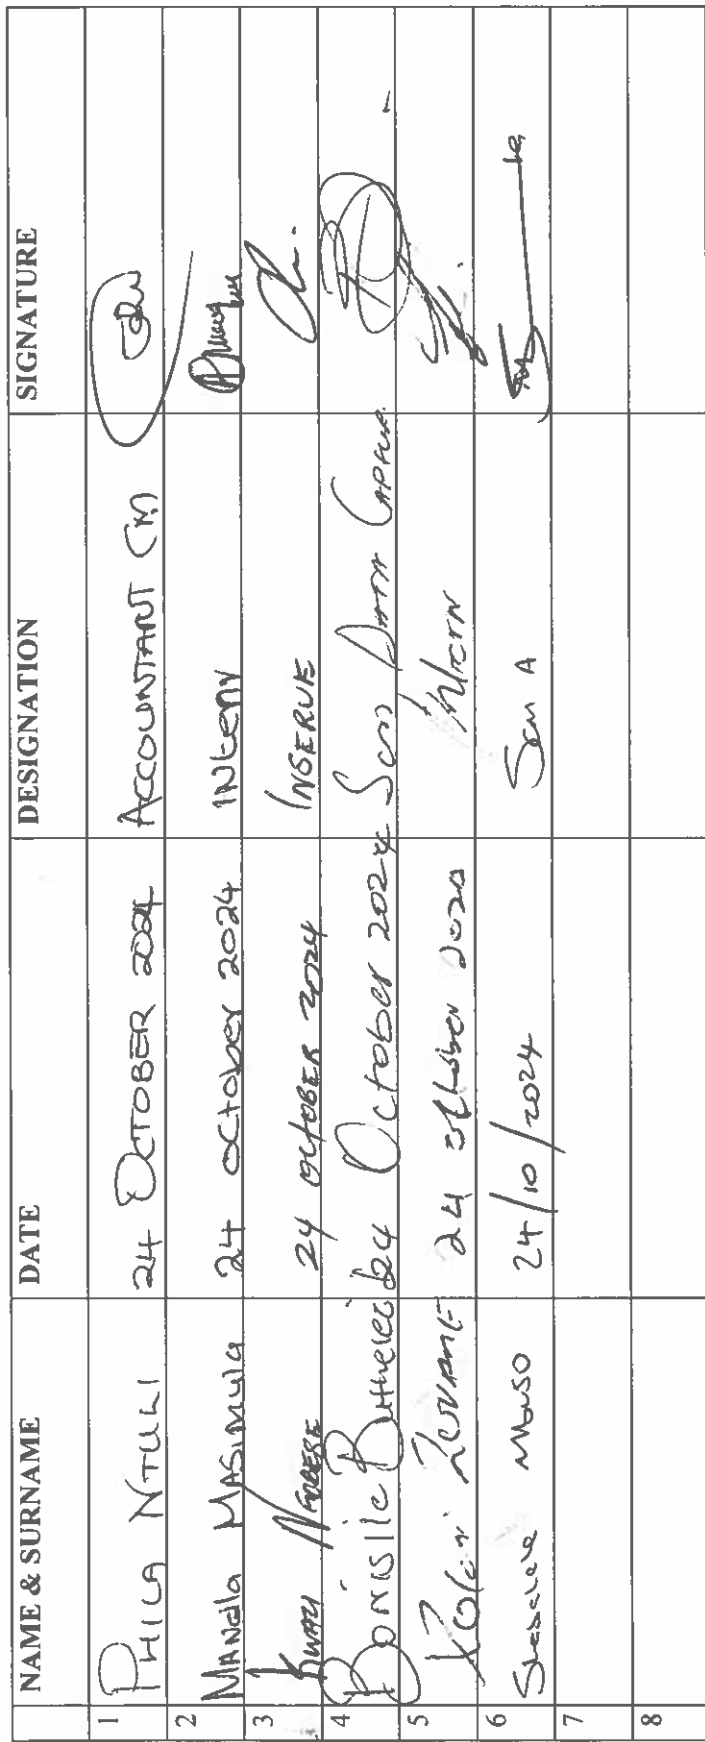 NAME & SURNAME DATE DESIGNATION SIGNATURE
1 PHILA NTULI 24 OCTOBER 2024 ACCOUNTANT (M)
2 Mandla Masimula 24 October 2024 INtern
3 Kwazi 24 OCTOBER 2024 INSERVE
4 Bonisile Buthelezi 24 October 2024 Scm Data Capture
5 24 October
6 24/10/2024 Scm A
7
8